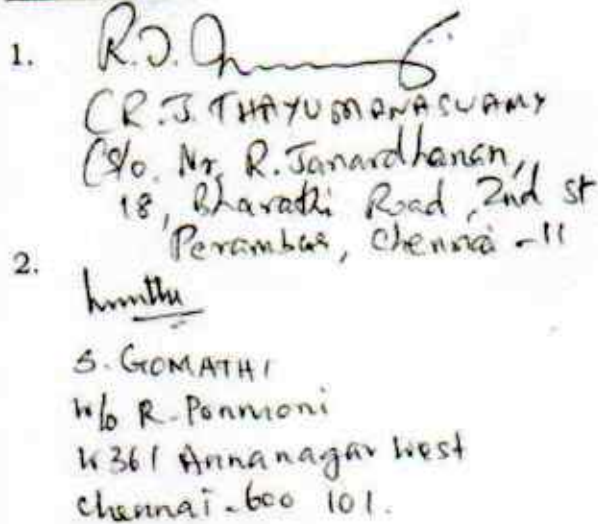 1. R.J.
(R.J. THAYUMANASWAMY
(S/o. Mr. R. Janardhanan,
18, Bharathi Road, 2nd st
Perambur, Chennai - 11
2.
S. GOMATHI
W/o R. Ponmoni
W361 Annanagar West
Chennai - 600 101.